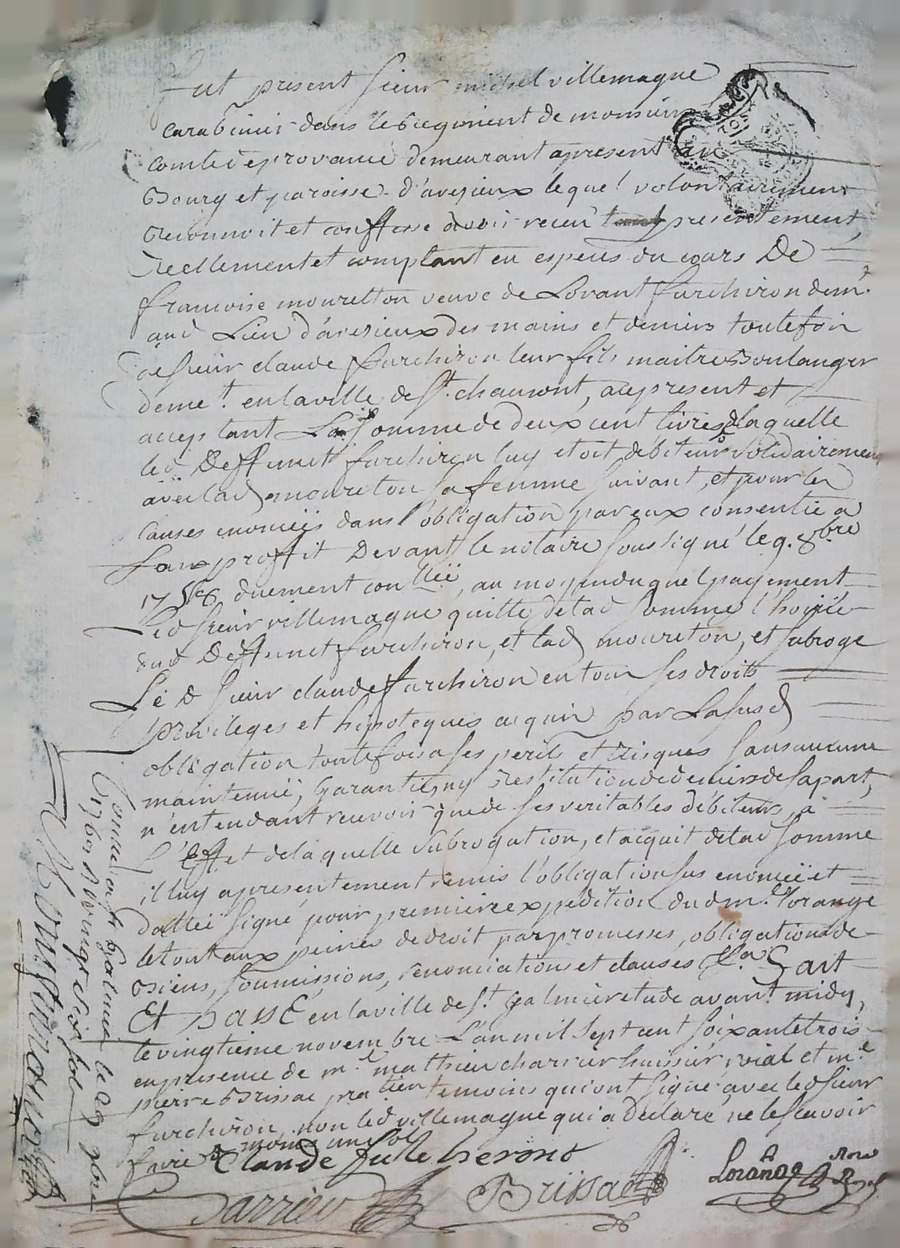 Fut present sieur michel villemagne
carabinier dans le regiment de monsieur
comte de provance demeurant apresent
Bourg et paroisse d'avezieux lequel volontairement
Reconnoit et conffesse avoir receu presentement
reellement et comptant en especes du cours De
francoise mouretton veuve de Lorant furchiron dem.t
aud Lieu d'avezieux des mains et deniers toutefois
de sieur claude furchiron leur fils maitre Boulanger
deme.t en la ville de St. chaumont, acepresent et
acceptant La somme de deux cent livres de laquelle
led Deffunct furchiron luy etoit debiteur solidairement
avec lad mouretton sa femme suivant, et pour les
causes enoncées dans l'obligation par eux consentie a
son proffit Devant le notaire soussigné le 9. 8bre
duement conllée, au moyen duquel payement
Led sieur villemagne quitte de lad somme l'hoirie
dud Deffunct furchiron, et lad moureton, et subroge
Le d sieur claude furchiron en tous ses droits
privileges et hipoteques acquis par La susd
obligation toutefois a ses perils et risques sans aucune
maintenüe, Garantie, ny restitution de deniers de sa part,
n'entendant recevoir que de ses veritables debiteurs, a
L'Effet de laquelle subrogation, et acquit de lad somme
il luy a presentement remis l'obligation sus enoncée et
dattée signé pour premiere expedition dud m.e Lorange
le tout aux peines de droit par promesses, obligations de
Biens, soumissions, renonciations et clauses Fait
Et PassÉ, en la ville de St. galmier etude avant midy,
le vingtieme novembre L'an mil sept cent soixante trois
en presence de m.e mathieu charrier huissier royal et m.e
pierre Brissac praticien temoins qui ont signé avec led sieur
furchiron, non led villemagne qui a declaré ne le scavoir
faire
Claude
Charrier Brissac Lorange